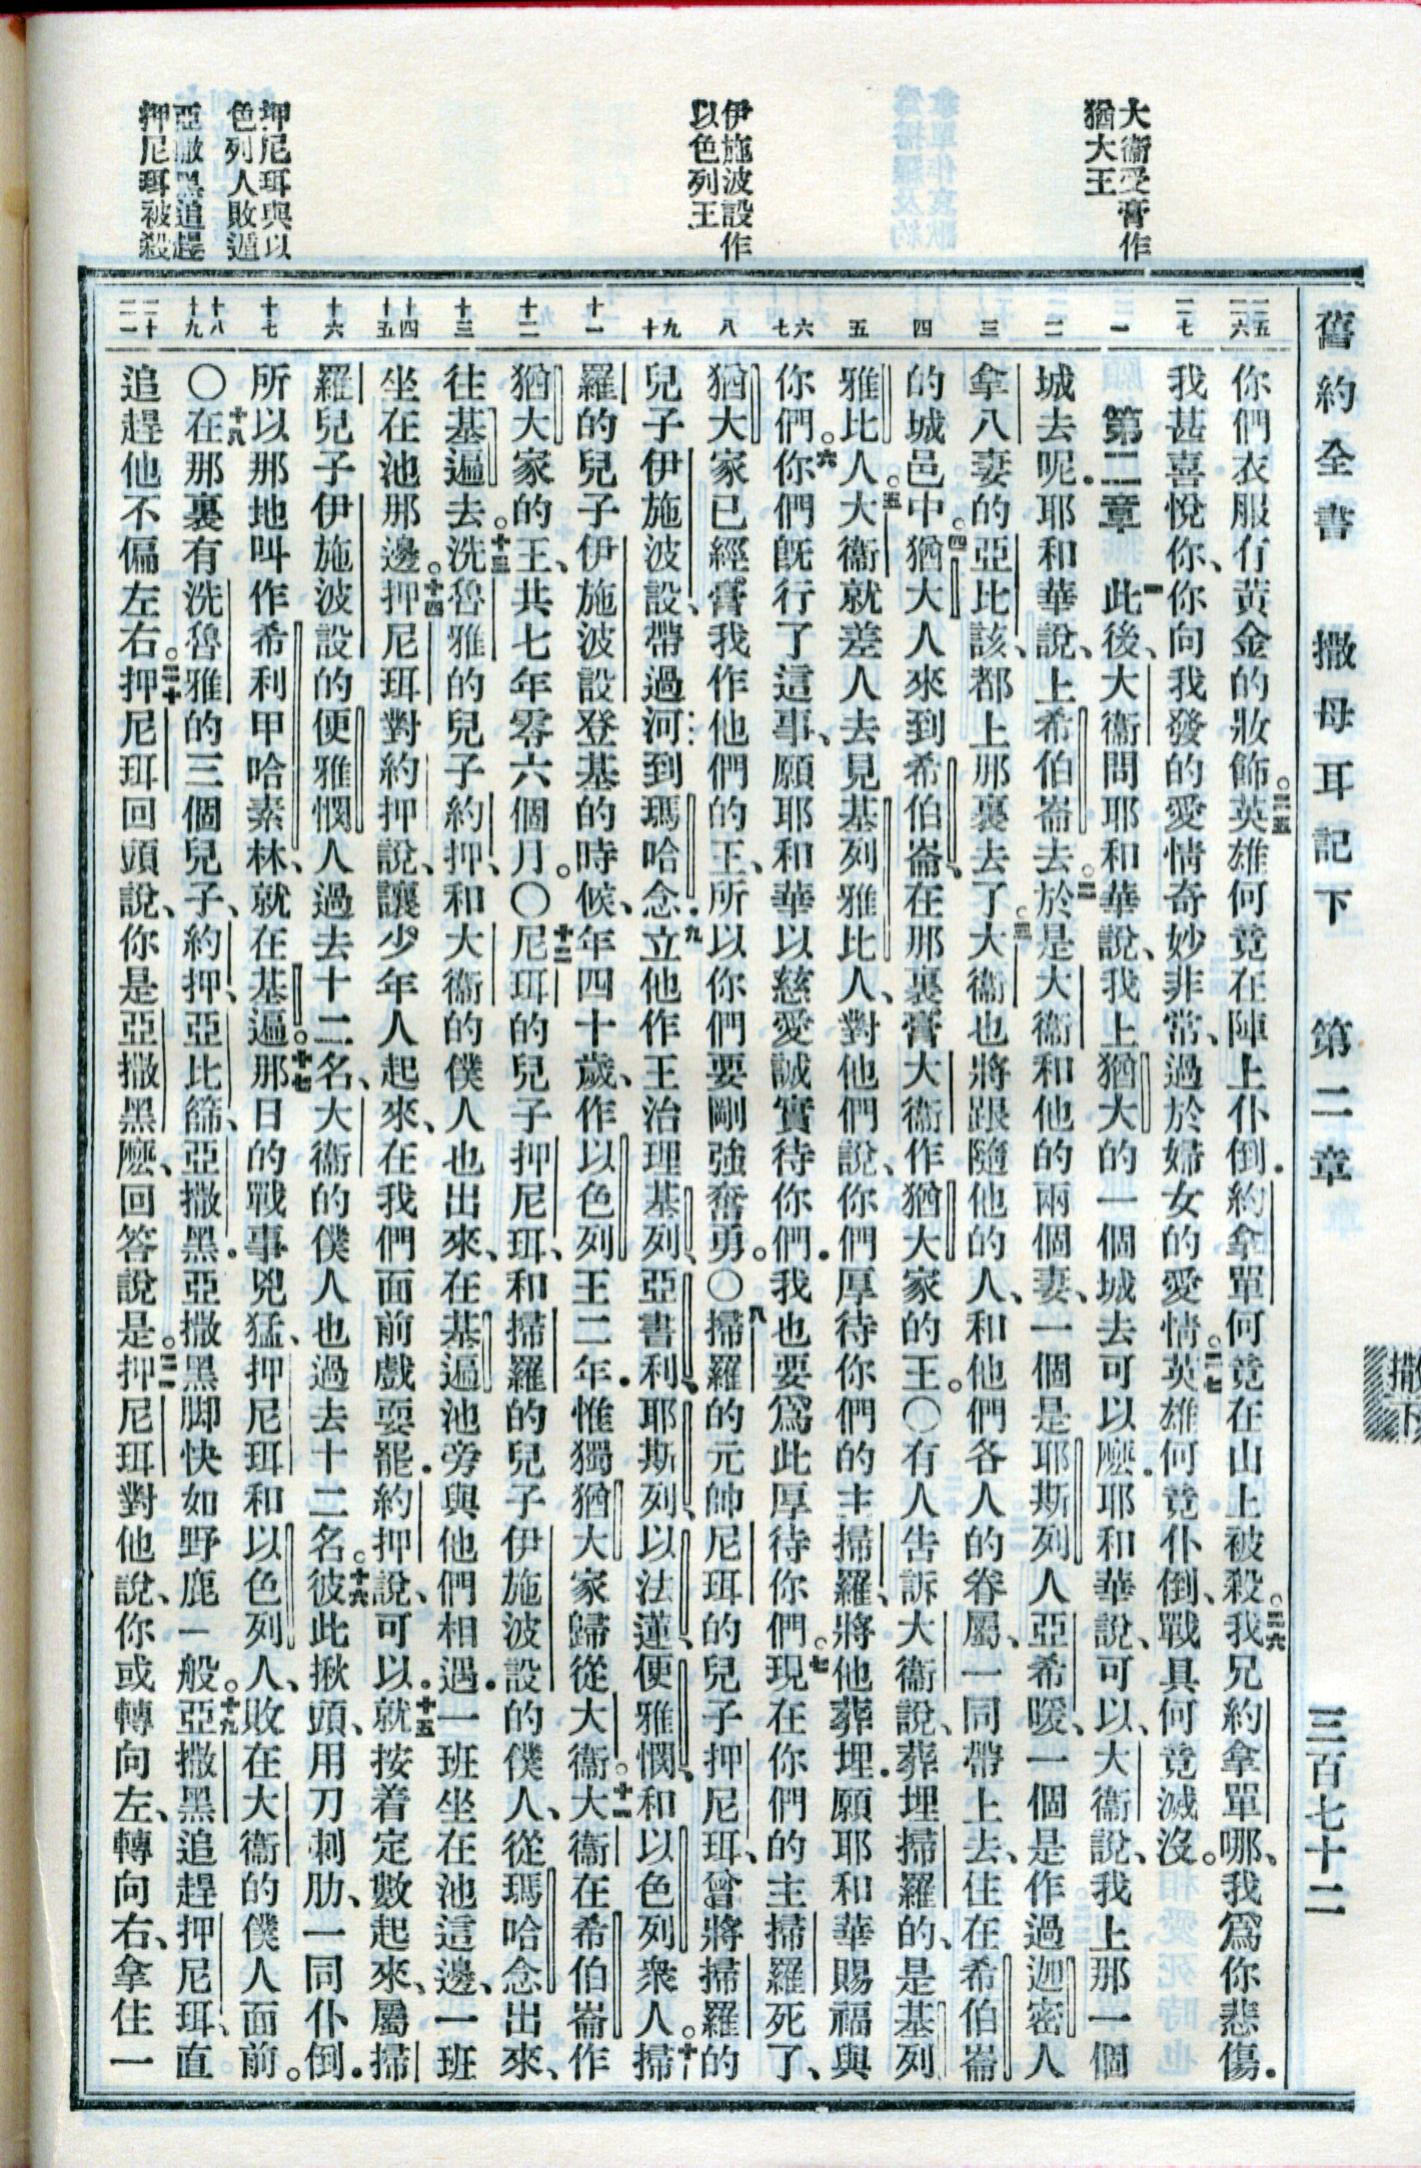 舊約全書 撒母耳記下 第二章 三百七十二
撒下
大衞受膏作
猶大王
伊施波設作
以色列王
押尼珥與以
色列人敗遁
亞撒黑追趕
押尼珥被殺
二五 二六 二七 一 二 三 四 五 六 七 八 九 十 十一 十二 十三 十四 十五 十六 十七 十八 十九 二十 二一
你們衣服有黃金的妝飾。二五英雄何竟在陣上仆倒．約拿單何竟在山上被殺。二六我兄約拿單哪、我爲你悲傷．
我甚喜悅你、你向我發的愛情奇妙非常、過於婦女的愛情。二七英雄何竟仆倒、戰具何竟滅沒。
第二章 一此後、大衞問耶和華說、我上猶大的一個城去可以麽．耶和華說、可以、大衞說、我上那一個
城去呢．耶和華說、上希伯崙去。二於是大衞和他的兩個妻、一個是耶斯列人亞希暖、一個是作過迦密人
拿八妻的亞比該、都上那裏去了。三大衞也將跟隨他的人、和他們各人的眷屬、一同帶上去、住在希伯崙
的城邑中。四猶大人來到希伯崙、在那裏膏大衞作猶大家的王。〇有人告訴大衞說、葬埋掃羅的、是基列
雅比人。五大衞就差人去見基列雅比人、對他們說、你們厚待你們的主掃羅、將他葬埋．願耶和華賜福與
你們。六你們旣行了這事、願耶和華以慈愛誠實待你們．我也要爲此厚待你們。七現在你們的主掃羅死了、
猶大家已經膏我作他們的王、所以你們要剛強奮勇。〇八掃羅的元帥尼珥的兒子押尼珥、曾將掃羅的
兒子伊施波設、帶過河、到瑪哈念．九立他作王、治理基列、亞書利、耶斯列、以法蓮、便雅憫、和以色列衆人。十掃
羅的兒子伊施波設登基的時候、年四十歲、作以色列王二年．惟獨猶大家歸從大衞。十一大衞在希伯崙作
猶大家的王、共七年零六個月。〇十二尼珥的兒子押尼珥、和掃羅的兒子伊施波設的僕人、從瑪哈念出來、
往基遍去。十三洗魯雅的兒子約押、和大衞的僕人也出來、在基遍池旁與他們相遇．一班坐在池這邊、一班
坐在池那邊。十四押尼珥對約押說、讓少年人起來、在我們面前戲耍罷．約押說、可以．十五就按着定數起來、屬掃
羅兒子伊施波設的便雅憫人過去十二名、大衞的僕人也過去十二名。十六彼此揪頭、用刀刺肋、一同仆倒．
所以那地叫作希利甲哈素林、就在基遍。十七那日的戰事兇猛、押尼珥和以色列人、敗在大衞的僕人面前。
〇十八在那裏有洗魯雅的三個兒子、約押、亞比篩、亞撒黑．亞撒黑脚快如野鹿一般。十九亞撒黑追趕押尼珥、直
追趕他不偏左右。二十押尼珥回頭說、你是亞撒黑麽、回答說、是。二一押尼珥對他說、你或轉向左、轉向右、拿住一